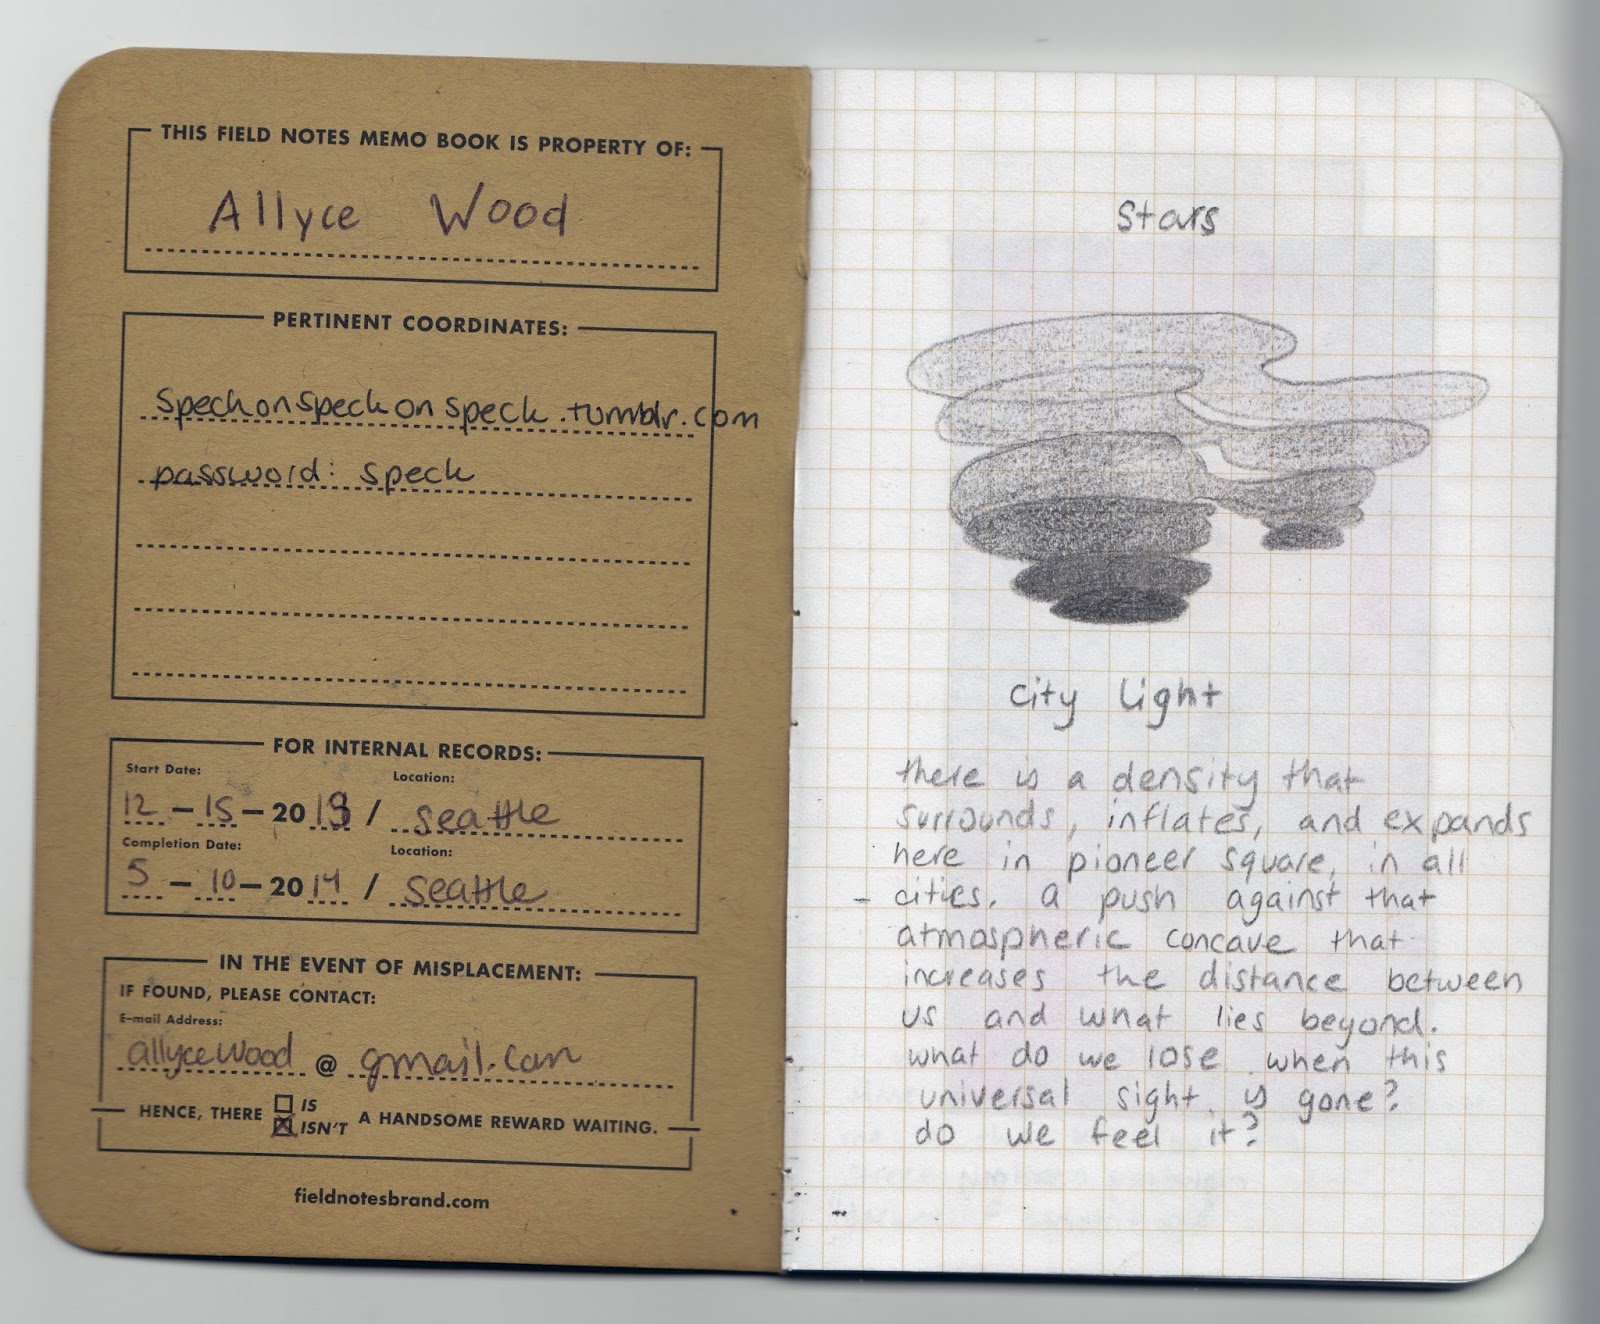 THIS FIELD NOTES MEMO BOOK IS PROPERTY OF:
Allyce Wood
PERTINENT COORDINATES:
speckonspeckonspeck.tumblr.com
password: speck
FOR INTERNAL RECORDS:
Start Date: Location:
12 – 15 – 2013 / seattle
Completion Date: Location:
5 – 10 – 2014 / seattle
IN THE EVENT OF MISPLACEMENT:
IF FOUND, PLEASE CONTACT:
E-mail Address:
allycewood @ gmail.com
HENCE, THERE IS
ISN'T A HANDSOME REWARD WAITING.
fieldnotesbrand.com
stars
city light
there is a density that
surrounds, inflates, and expands
here in pioneer square, in all
cities. a push against that
atmospheric concave that
increases the distance between
us and what lies beyond.
what do we lose when this
universal sight is gone?
do we feel it?